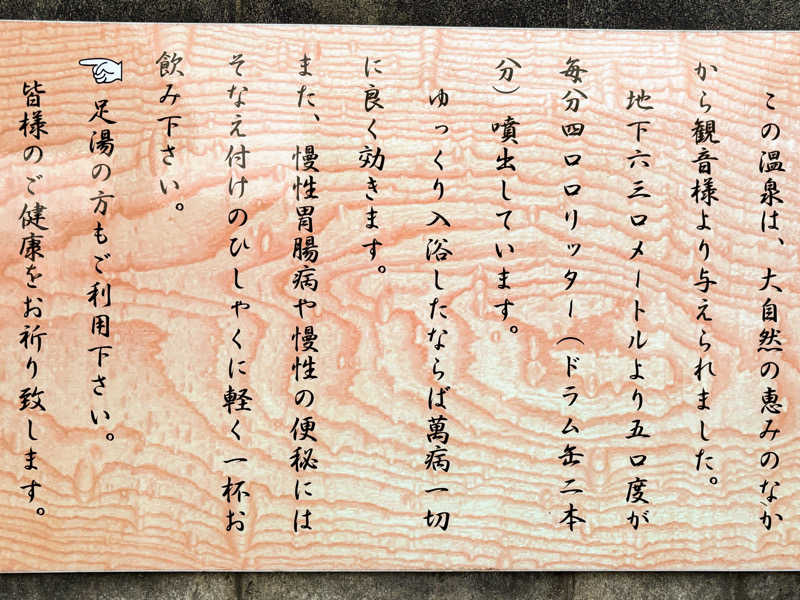 この温泉は、大自然の恵みのなか
から観音様より与えられました。
地下六三〇メートルより五〇度が
毎分四〇〇リッター（ドラム缶二本
分）噴出しています。
ゆっくり入浴したならば萬病一切
に良く効きます。
また、慢性胃腸病や慢性の便秘には
そなえ付けのひしゃくに軽く一杯お
飲み下さい。
足湯の方もご利用下さい。
皆様のご健康をお祈り致します。